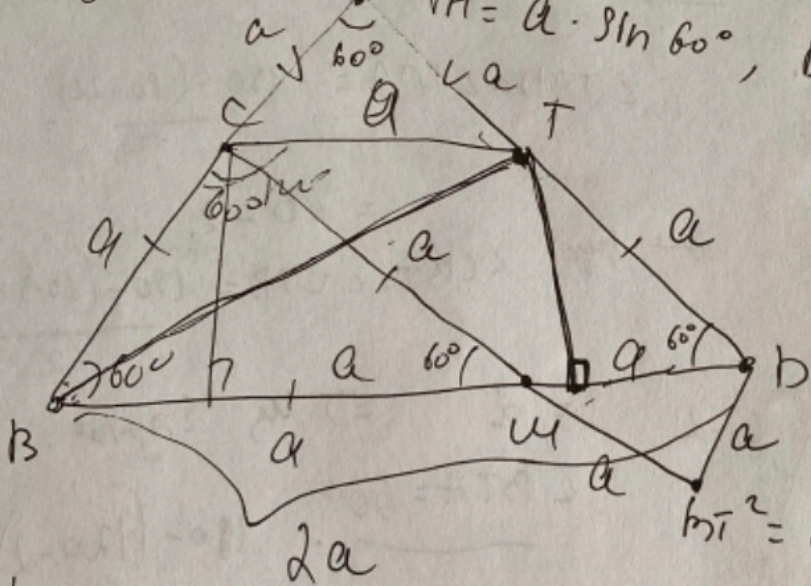 a
60°
TH = a · sin 60°,
a
C
a
T
60°
a
a
a
60°
a
60°
a
60°
D
B
a
M
a
a
2a
BT² =